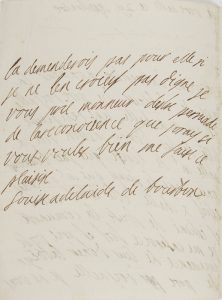 la demenderois pas pour elle si
je ne len croiois pas digne je
vous prie monsieur destre persuade
de la reconoisence que jorois si
vous voules bien me faire ce
plaisir
Louise adelaide de bourbon